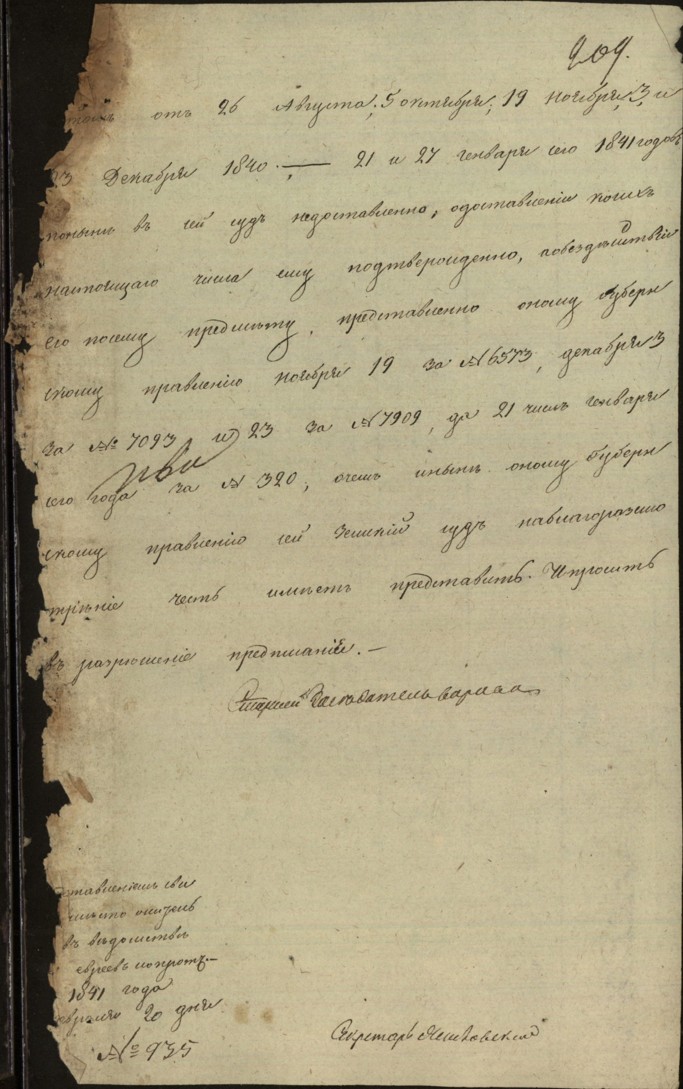 209.
отъ 26 Августа, 5 октября, 19 ноября, 3, и
23 Декабря 1840. — 21 и 27 генваря сего 1841 годовъ
понынѣ въ сей судъ недоставленно, одоставленіи коихъ
настоящаго числа ему подтвержденно, аобездѣйствіи
его посему предмѣту, представленно оному Губерн
скому правленію ноября 19 за № 6573, декабря 3
за № 7093 и 23 за № 7909, да 21 числъ генваря
сего года за № 320, очемъ инынѣ оному Губерн
скому правленію сей Земскій судъ наблагоразсмо
трѣніе честь имѣетъ представить. Ипросить
въ разрешеніе предписанія. —
Старшій Заседатель
ставленіемъ све
въ вѣдомствѣ
евреевъ
1841 года
февраля 20 дня
№ 935
Секретарь